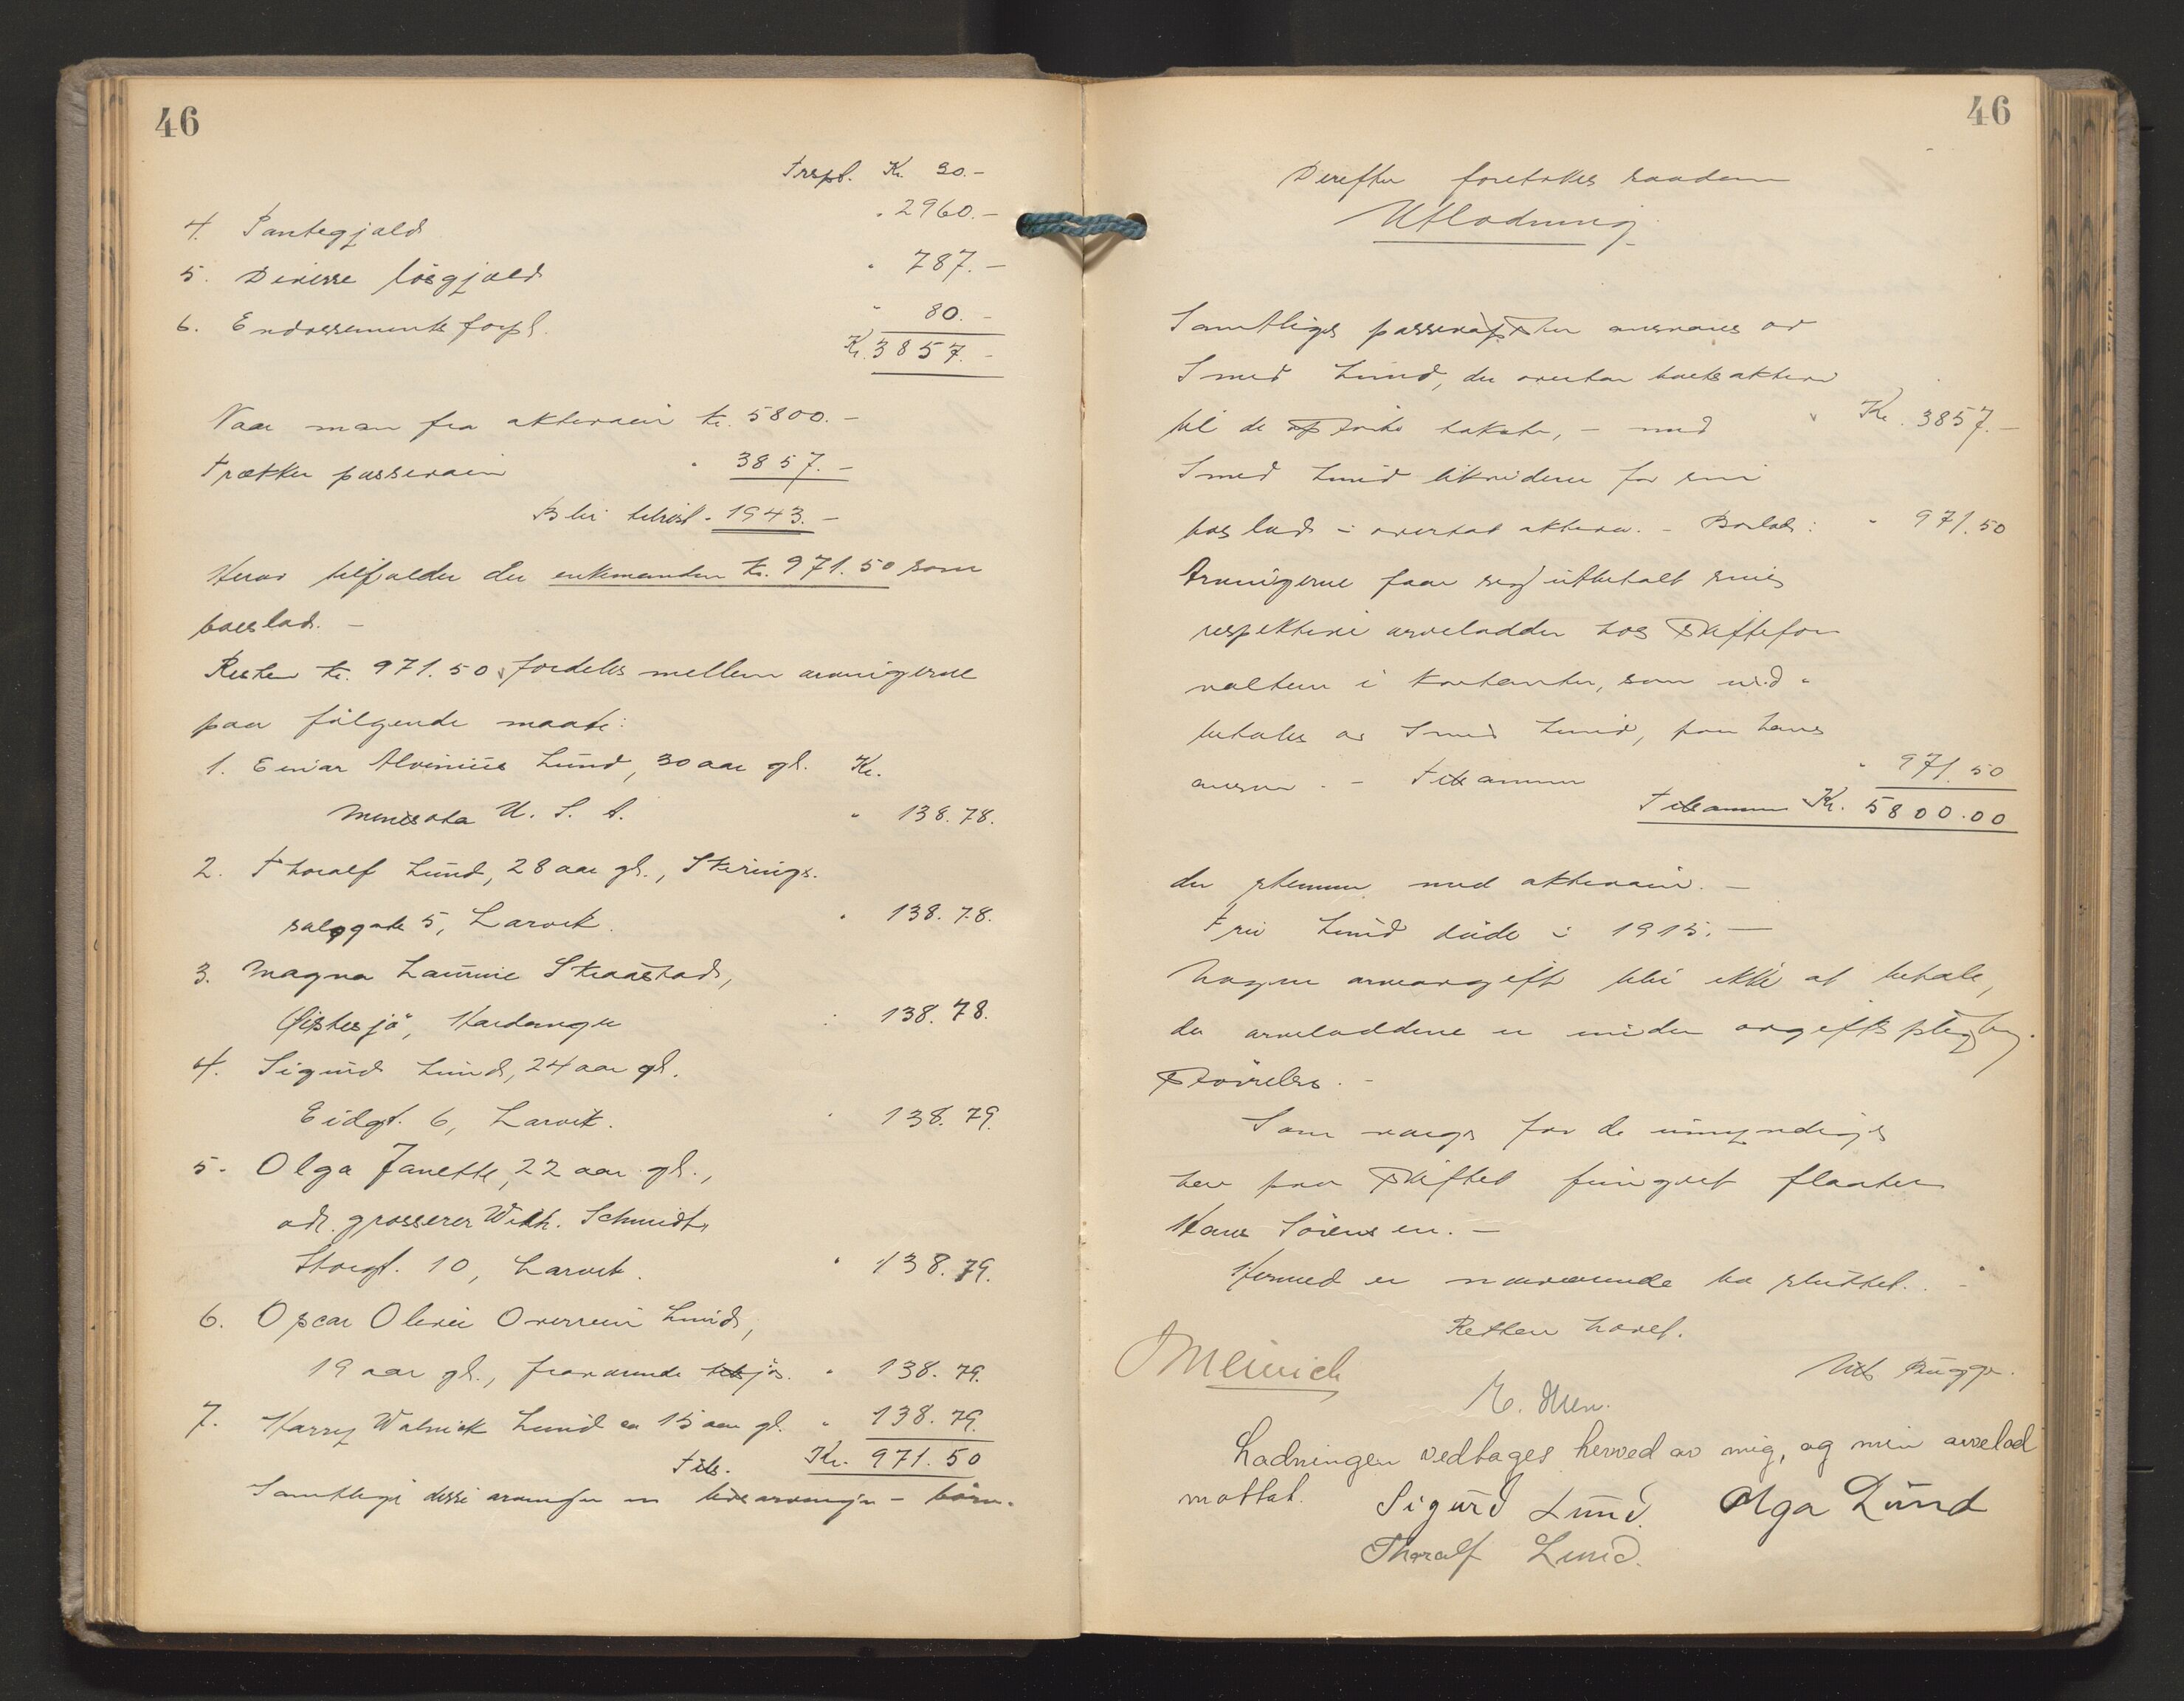 46
Trspt. Kr. 30.-
4. Pantegjæld " 2960.-
5. Diverse løsgjæld " 787.-
6. Endossementsforpl. " 80.-
Kr. 3857.-
Naar man fra aktivaein kr. 5800.-
trækker passivaein " 3857.-
Blir tilrest " 1943.-
Herav tilfalder der enkemanden kr. 971.50 som
boeslod. -
Resten kr. 971.50 fordeles mellem arvingerne
paa følgende maate:
1. Einar Alvinius Lund, 30 aar gl. Kr.
Menisota U. S. A. " 138.78.
2. Thoralf Lund, 28 aar gl., Skirings-
salsgate 5, Larvik. " 138.78.
3. Magna Laurine Skaastad,
Øistesjø, Hardanger " 138.78.
4. Sigurd Lund, 24 aar gl.
Eidgt. 6, Larvik. " 138.79.
5. Olga Janette, 22 aar gl.,
adr. grosserer Wilh. Schmidt,
Storgt. 10, Larvik. " 138.79.
6. Oscar Oliver Lund,
19 aar gl., fraværende tilsjøs. " 138.79.
7. Harry Walnick Lund ca 15 aar gl. " 138.79.
Tils. Kr. 971.50
Samtlige disse arvinger er livsarvinger - børn.
46
Derefter foretokes saadan
Utlodning
Samtlige passivaposter ansvares av
Smed Lund, der overtar boets aktiva
til de takster, - med " Kr. 3857.-
Smed Lund likviderer for sin
boslod i overtat aktiva. - Boslod: " 971.50
Arvingerne faar seg utbetalt sine
respektive arvelodder hos skiftefor-
valteren i kontanter, som ind-
betales av Smed Lund, paa hans
ansvar. - Tilsammen " 971.50
Tilsammen Kr. 5800.00
der stemmer med aktivaein. -
Fru Lund døde i 1915. -
Nogen arveavgift blir ikke at betale,
da arveloddene er under avgiftspligtig
størrelse. -
Som verge for de umyndige
har paa skiftet fungert flaater
Hans Sørensen. -
Hermed er nærværende bo sluttet. -
Retten hævet.
Meinich
E. Olsen.
Nils Bugge.
Lodningen vedtages herved av mig, og min arvelod
mottat. Sigurd Lund. Olga Lund
Thoralf Lund.